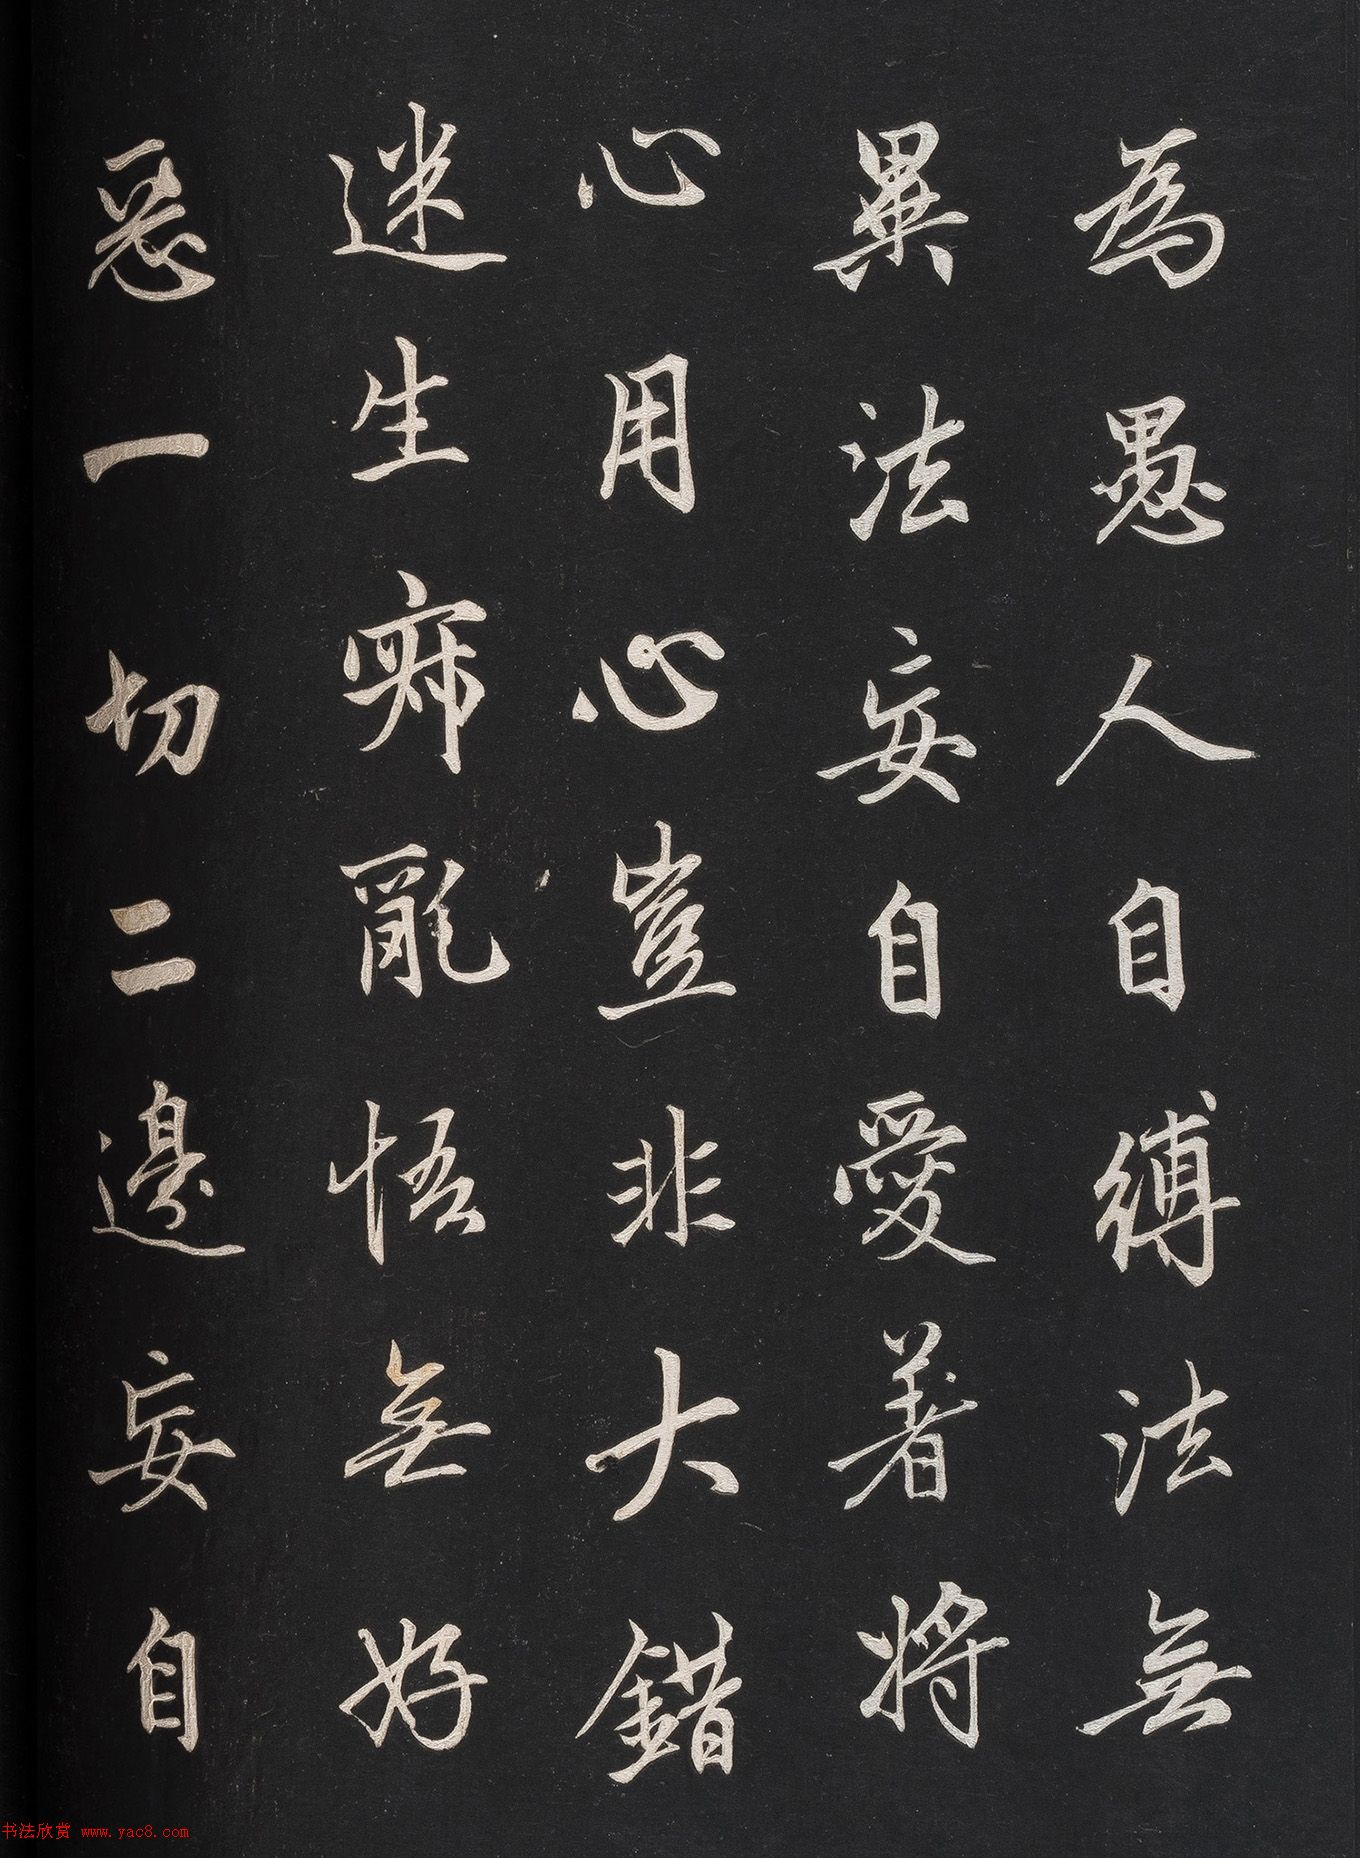 為愚人自縛法無
異法妄自愛著將
心用心豈非大錯
迷生寂亂悟無好
惡一切二邊妄自
书法欣赏 www.yac8.com